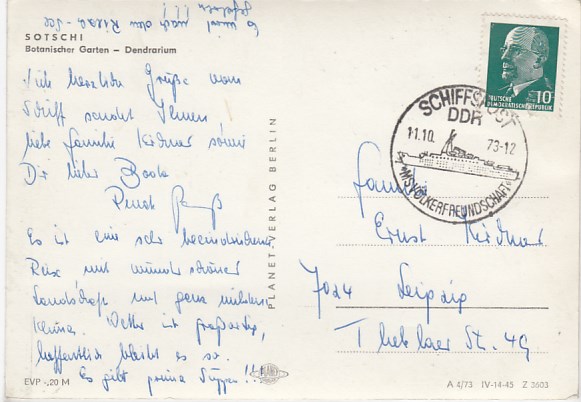 Es wird nach dem Riza-See
gefahren!!!
SOTSCHI
Botanischer Garten – Dendrarium
herzliche Grüße vom
Schiff sendet Ihnen,
liebe Familie Kirchner sowie
Dir lieber
Renate
Es ist eine sehr beeindruckende
Reise mit wunderschöner
Landschaft und ganz mildem
Klima. Wetter ist großartig,
hoffentlich bleibt es so.
Es gibt prima Suppen!!!
EVP -,20 M
PLANET-VERLAG BERLIN
SCHIFFSPOST
DDR
11.10. 73-12
"MS VÖLKERFREUNDSCHAFT"
10
DEUTSCHE
DEMOKRATISCHE REPUBLIK
Familie
Ernst Kirchner
7024 Leipzig
Str. 49
A 4/73 IV-14-45 Z 3603